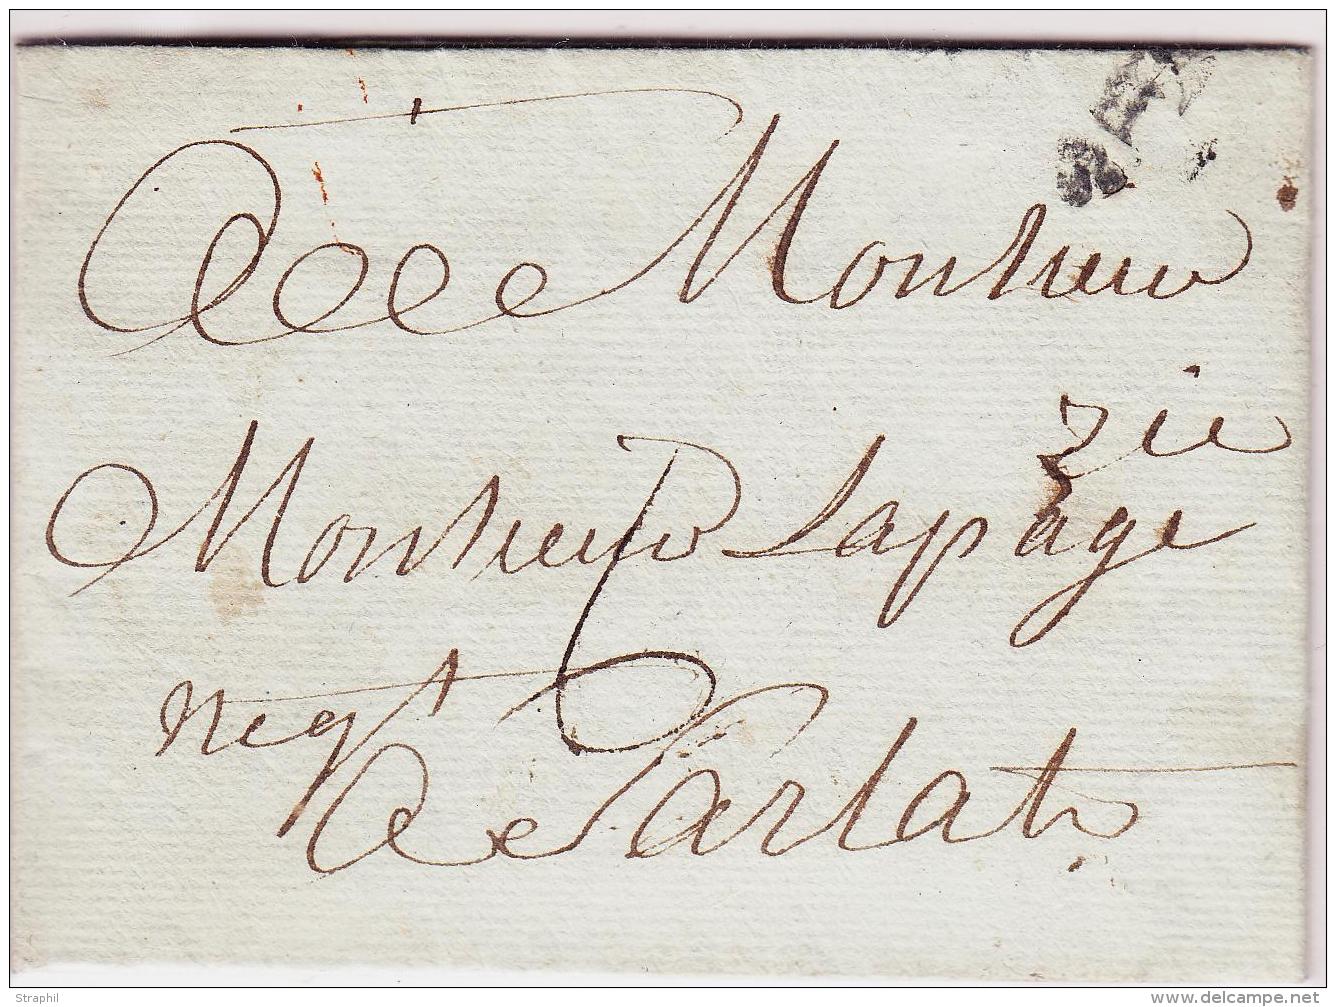 A Monsieur
Monsieur Lapage
zie
negt
A Sarlat
6
Straphil
www.delcampe.net